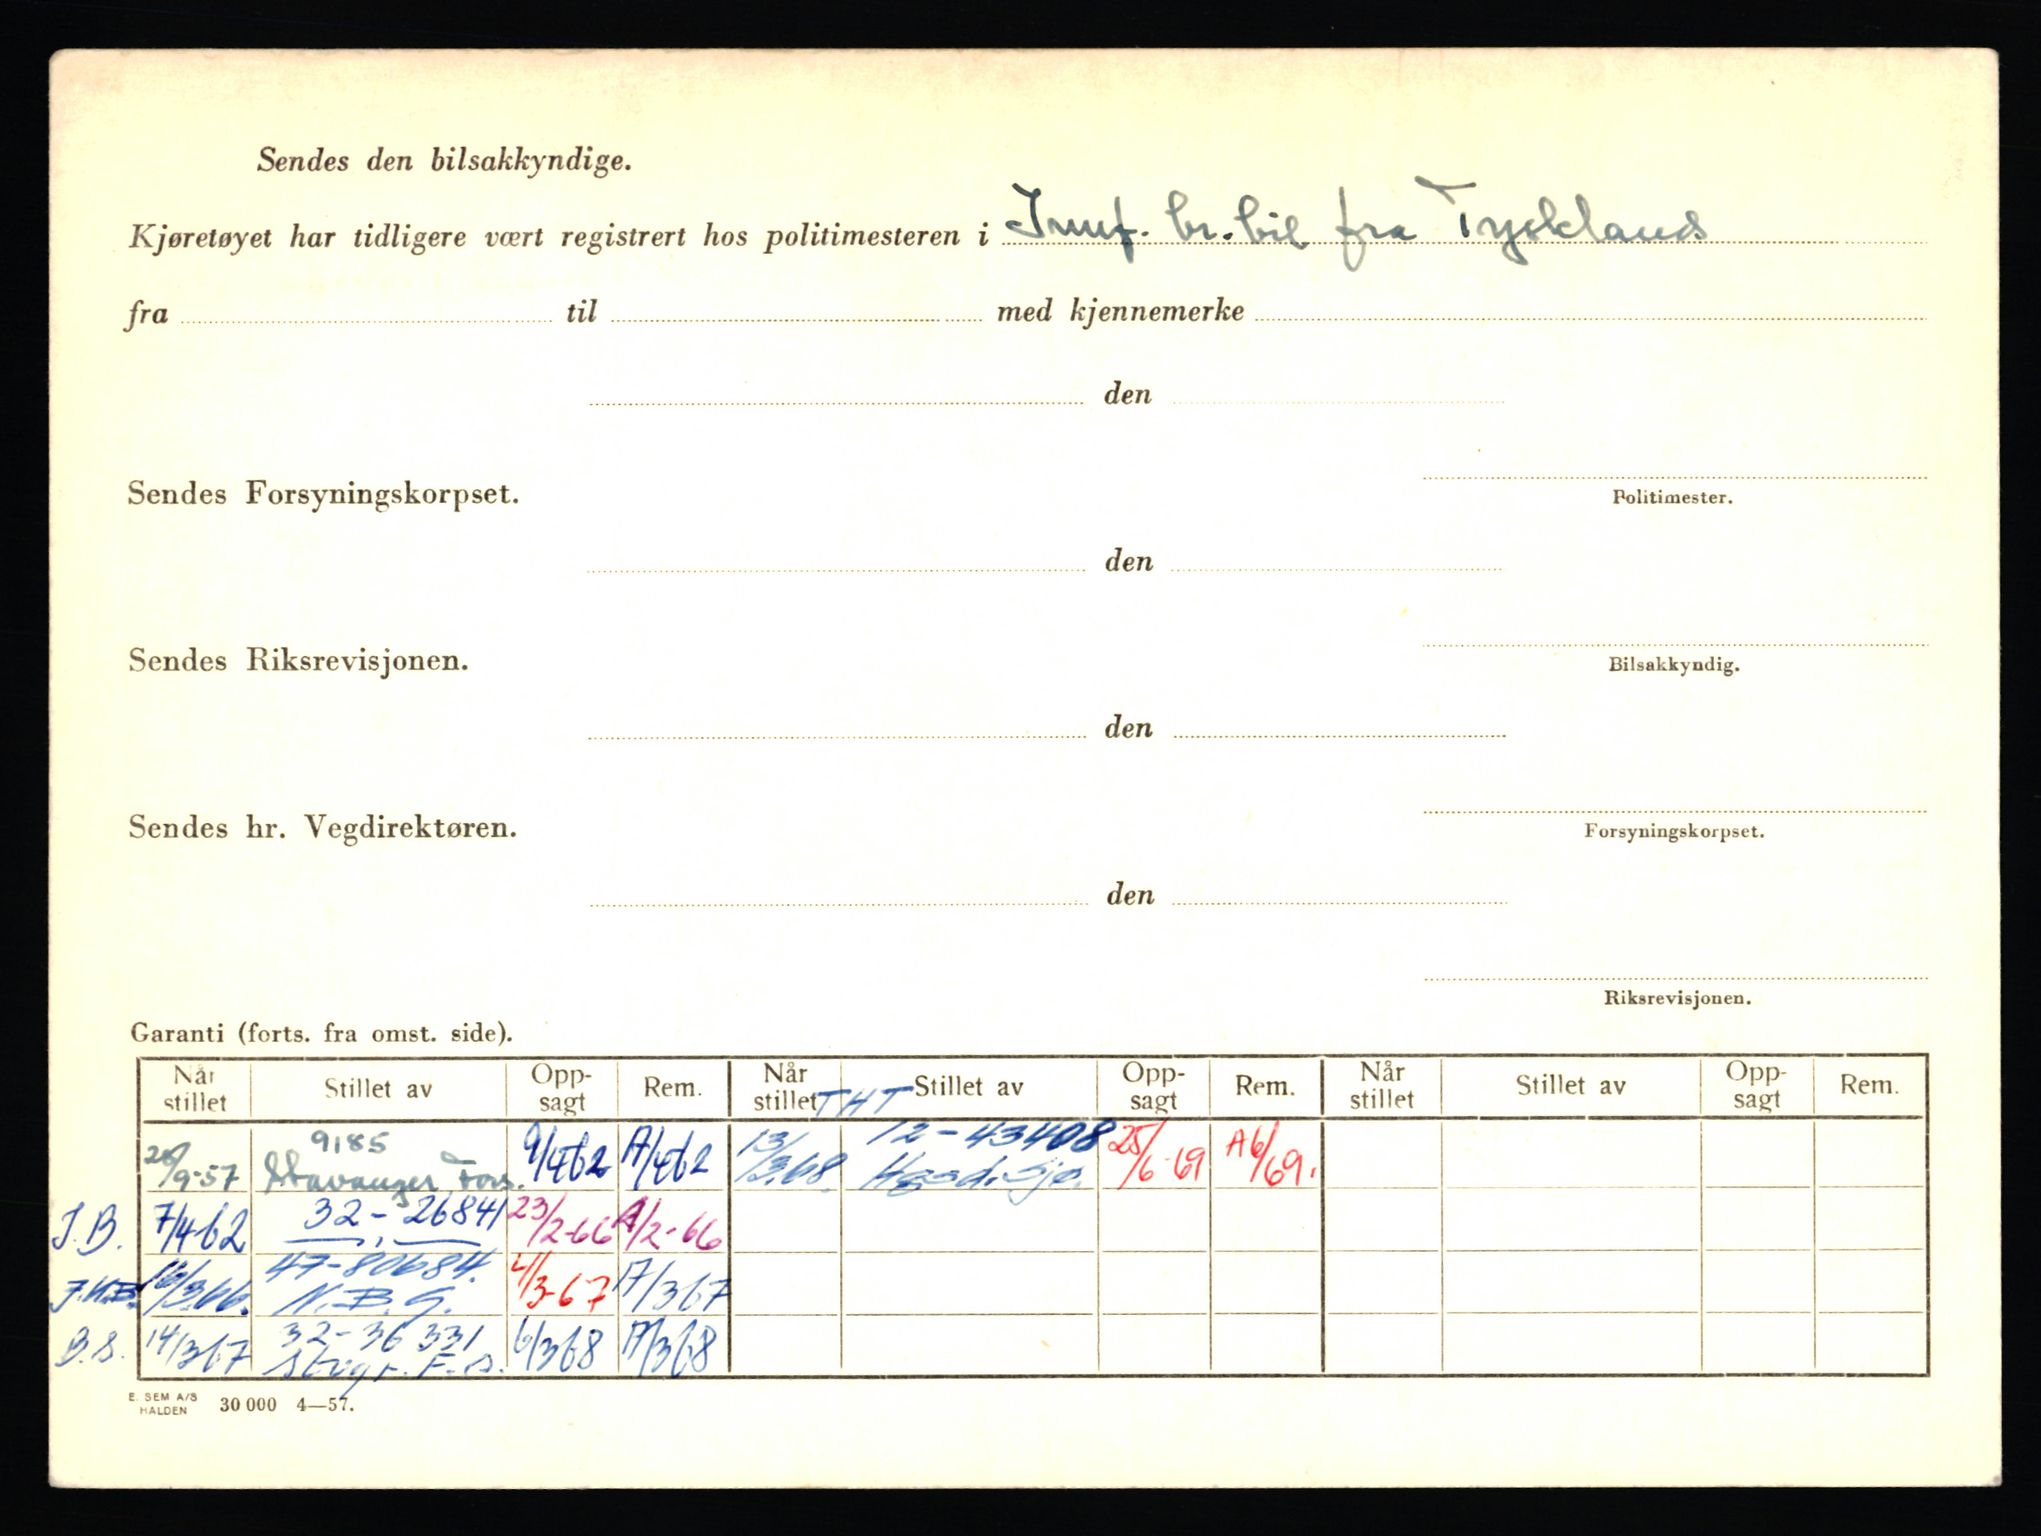 Sendes den bilsakkyndige.
Kjøretøyet har tidligere vært registrert hos politimesteren i Innf. br. bil fra Tyskland
fra til med kjennemerke
den
Sendes Forsyningskorpset.
Politimester.
den
Sendes Riksrevisjonen.
Bilsakkyndig.
den
Sendes hr. Vegdirektøren.
Forsyningskorpset.
den
Riksrevisjonen.
Garanti (forts. fra omst. side).
Når stillet Stillet av Opp-sagt Rem. Når stillet Stillet av Opp-sagt Rem. Når stillet Stillet av Opp-sagt Rem.
THT
26/9-57 9185 Stavanger Fors. 9/4-62 A/4-62 13/3.68. 12-43408 25/6-69 A6/69.
J.B. 7/4-62 32-26841 23/2-66 A/2-66
16/3.66. 47-80684. N.B.G. 4/3-67 A/367
B.S. 14/367 32-36331 Stvgr. F.S. 6/368 A/368
E. SEM A/S
HALDEN 30 000 4—57.